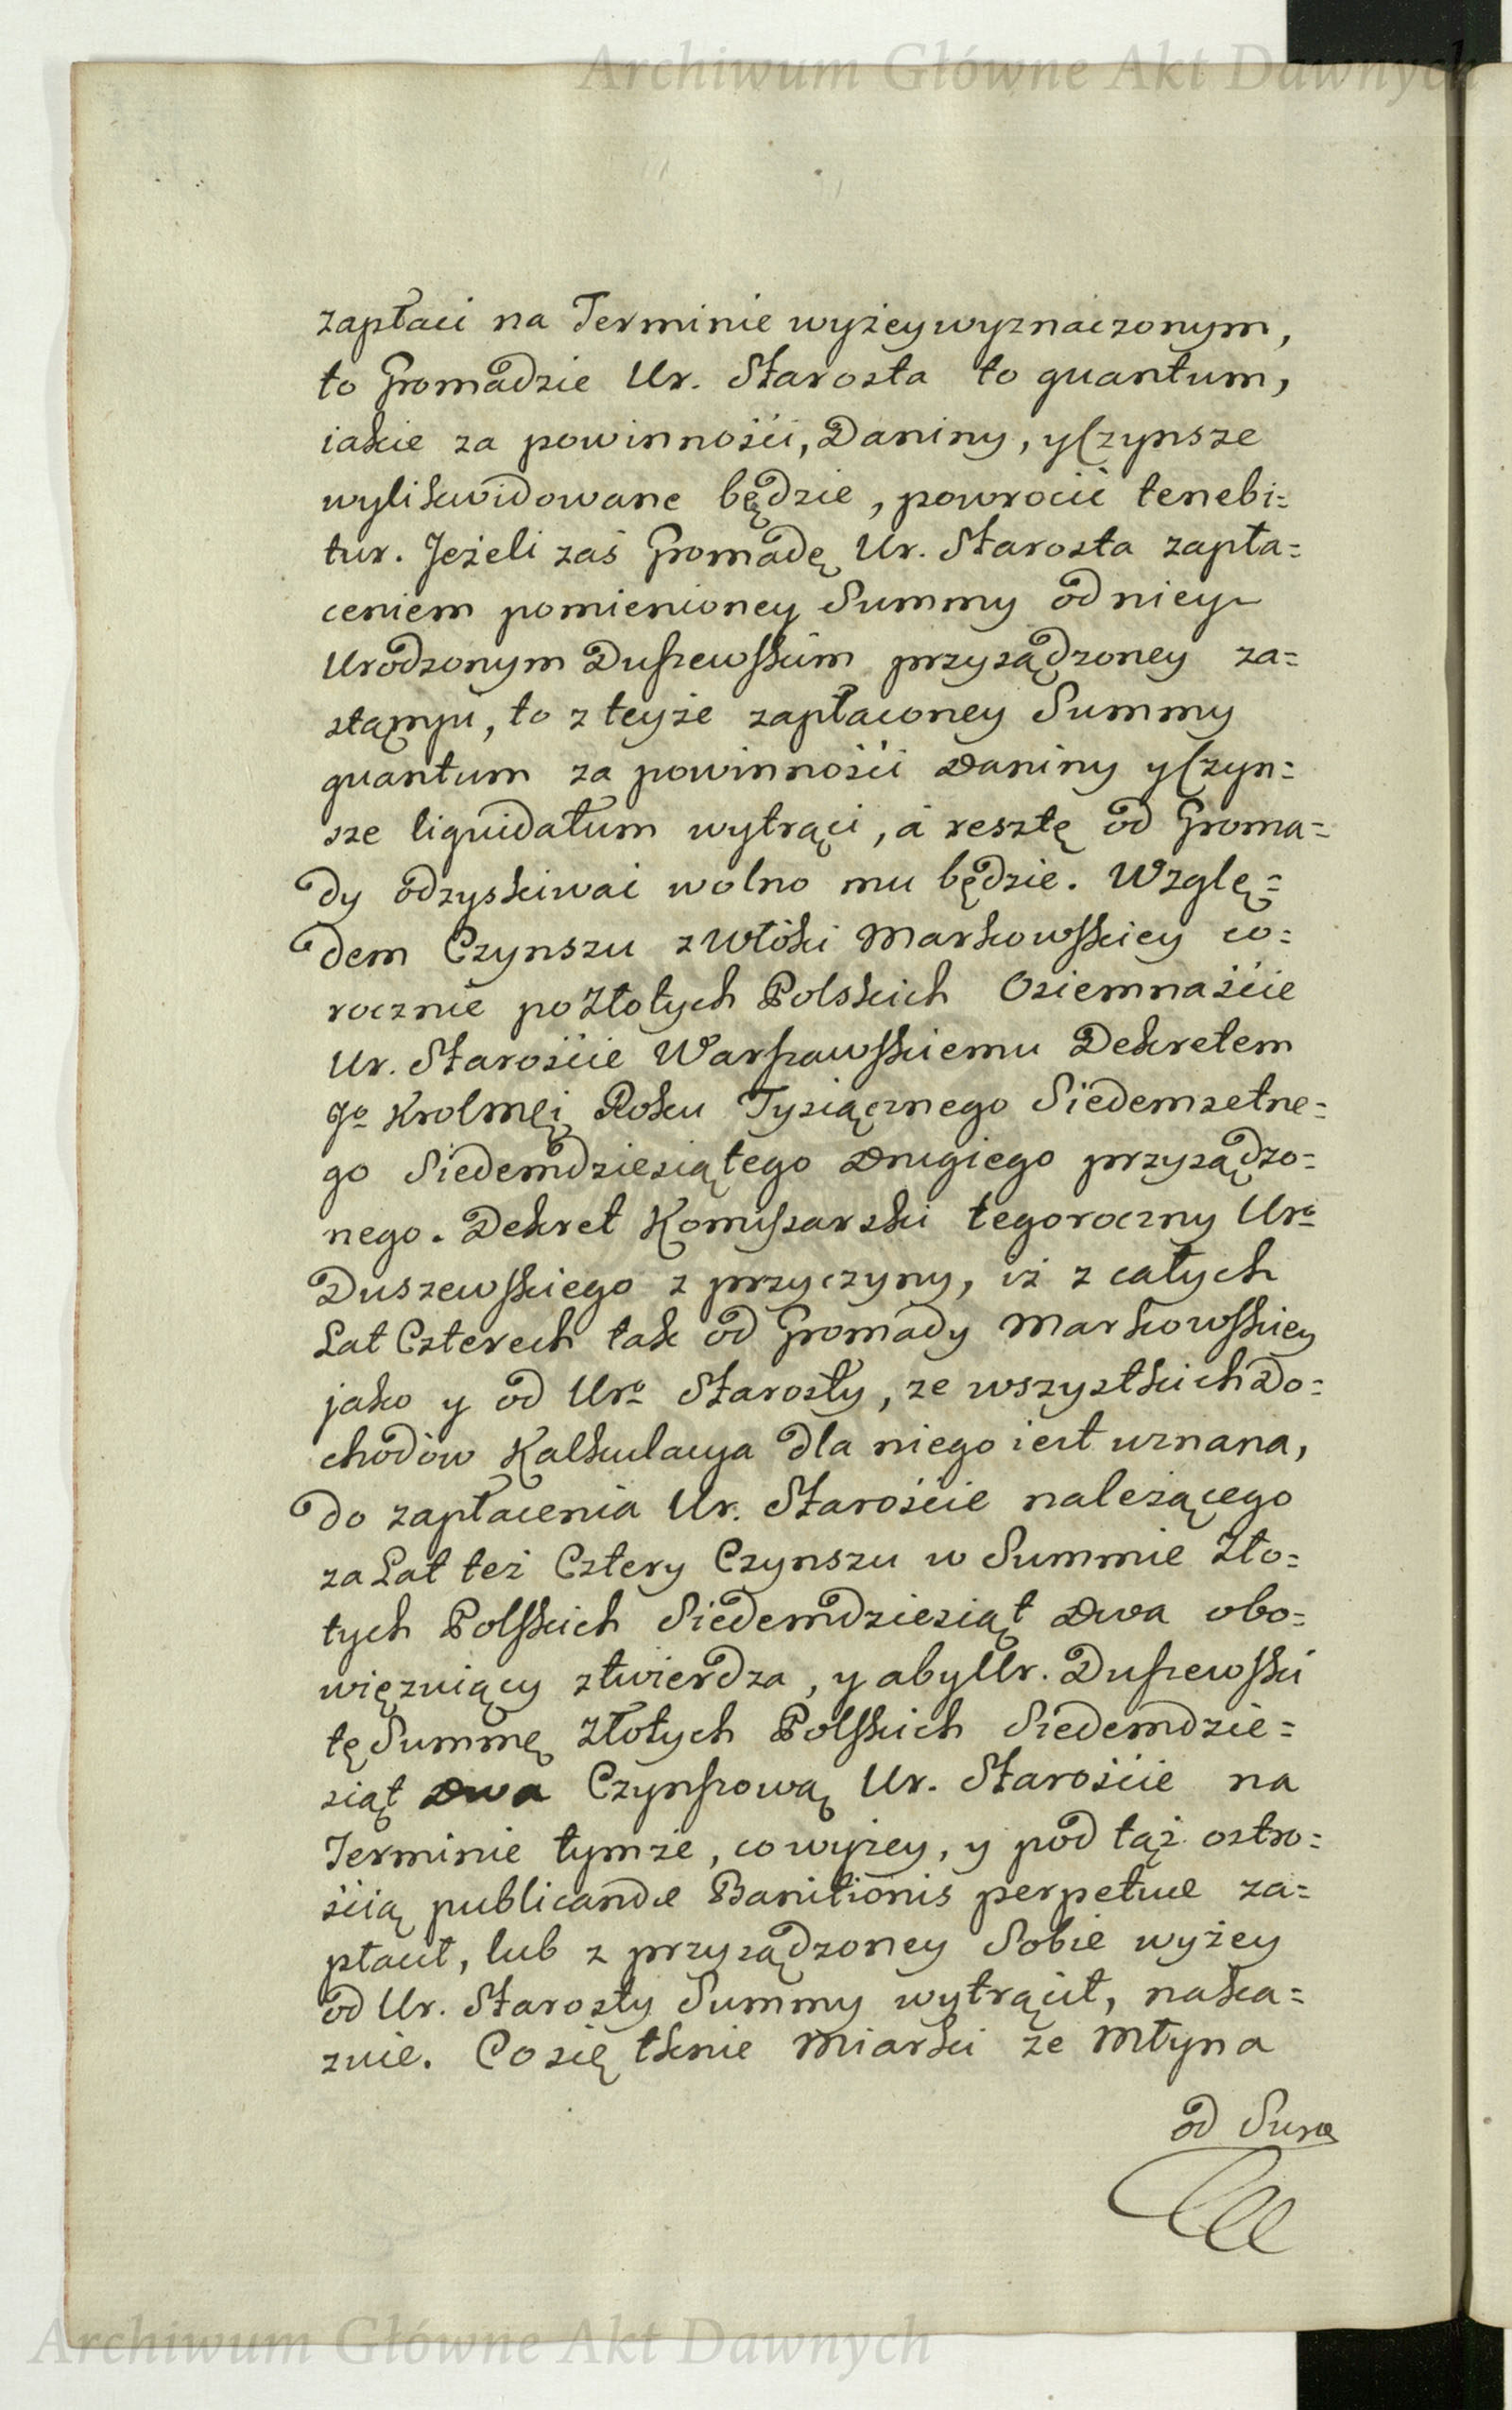 Archiwum Główne Akt Dawnych
zapłaci na Terminie wyżey wyznaczonym,
to Gromadzie Ur. Starosta to quantum,
iakie za powinności, Daniny, y Czynsze
wylikwidowane będzie, powrocić tenebi=
tur. Jeżeli zaś Gromadę Ur. Starosta zapła=
ceniem pomienioney Summy od niey
Urodzonym Duszewskim przysądzoney za=
stąmpi, to z teyże zapłaconey Summy
quantum za powinności Daniny y Czyn=
sze liquidatum wytrąci, a resztę od Groma=
dy odzyskiwać wolno mu będzie. Wzglę=
dem Czynszu z Włóki Markowskiey co=
rocznie po Złotych Polskich Osiemnaście
Ur. Starościie Warszawskiemu Dekretem
Jo Krolmęi Roku Tysiącznego Siedemsetne=
go Siedemdziesiątego Drugiego przysądzo=
nego. Dekret Komiszarski tegoroczny Uro
Duszewskiego z przyczyny, iż z całych
Lat Czterech tak od Gromady Markowskiey
jako y od Uro Starosty, ze wszystkich Do=
chodów Kalkulacya dla niego iest uznana,
do zapłacenia Ur. Starościie należącego
za Lat też Cztery Czynszu w Summie Zło=
tych Polskich Siedemdziesiąt Dwa obo=
więzuiący ztwierdza, y aby Ur. Duszewski
tę Summę Złotych Polskich Siedemdzie=
siąt Dwa Czynszową Ur. Starościie na
Terminie tymże, co wyżey, y pod tąż ostro=
ścią publicandæ Banitionis perpetuæ za=
płacił, lub z przysądzoney Sobie wyżey
od Ur. Starosty Summy wytrącił, naka=
zuie. Co się tknie Miarki ze Młyna
od Sura
Archiwum Główne Akt Dawnych